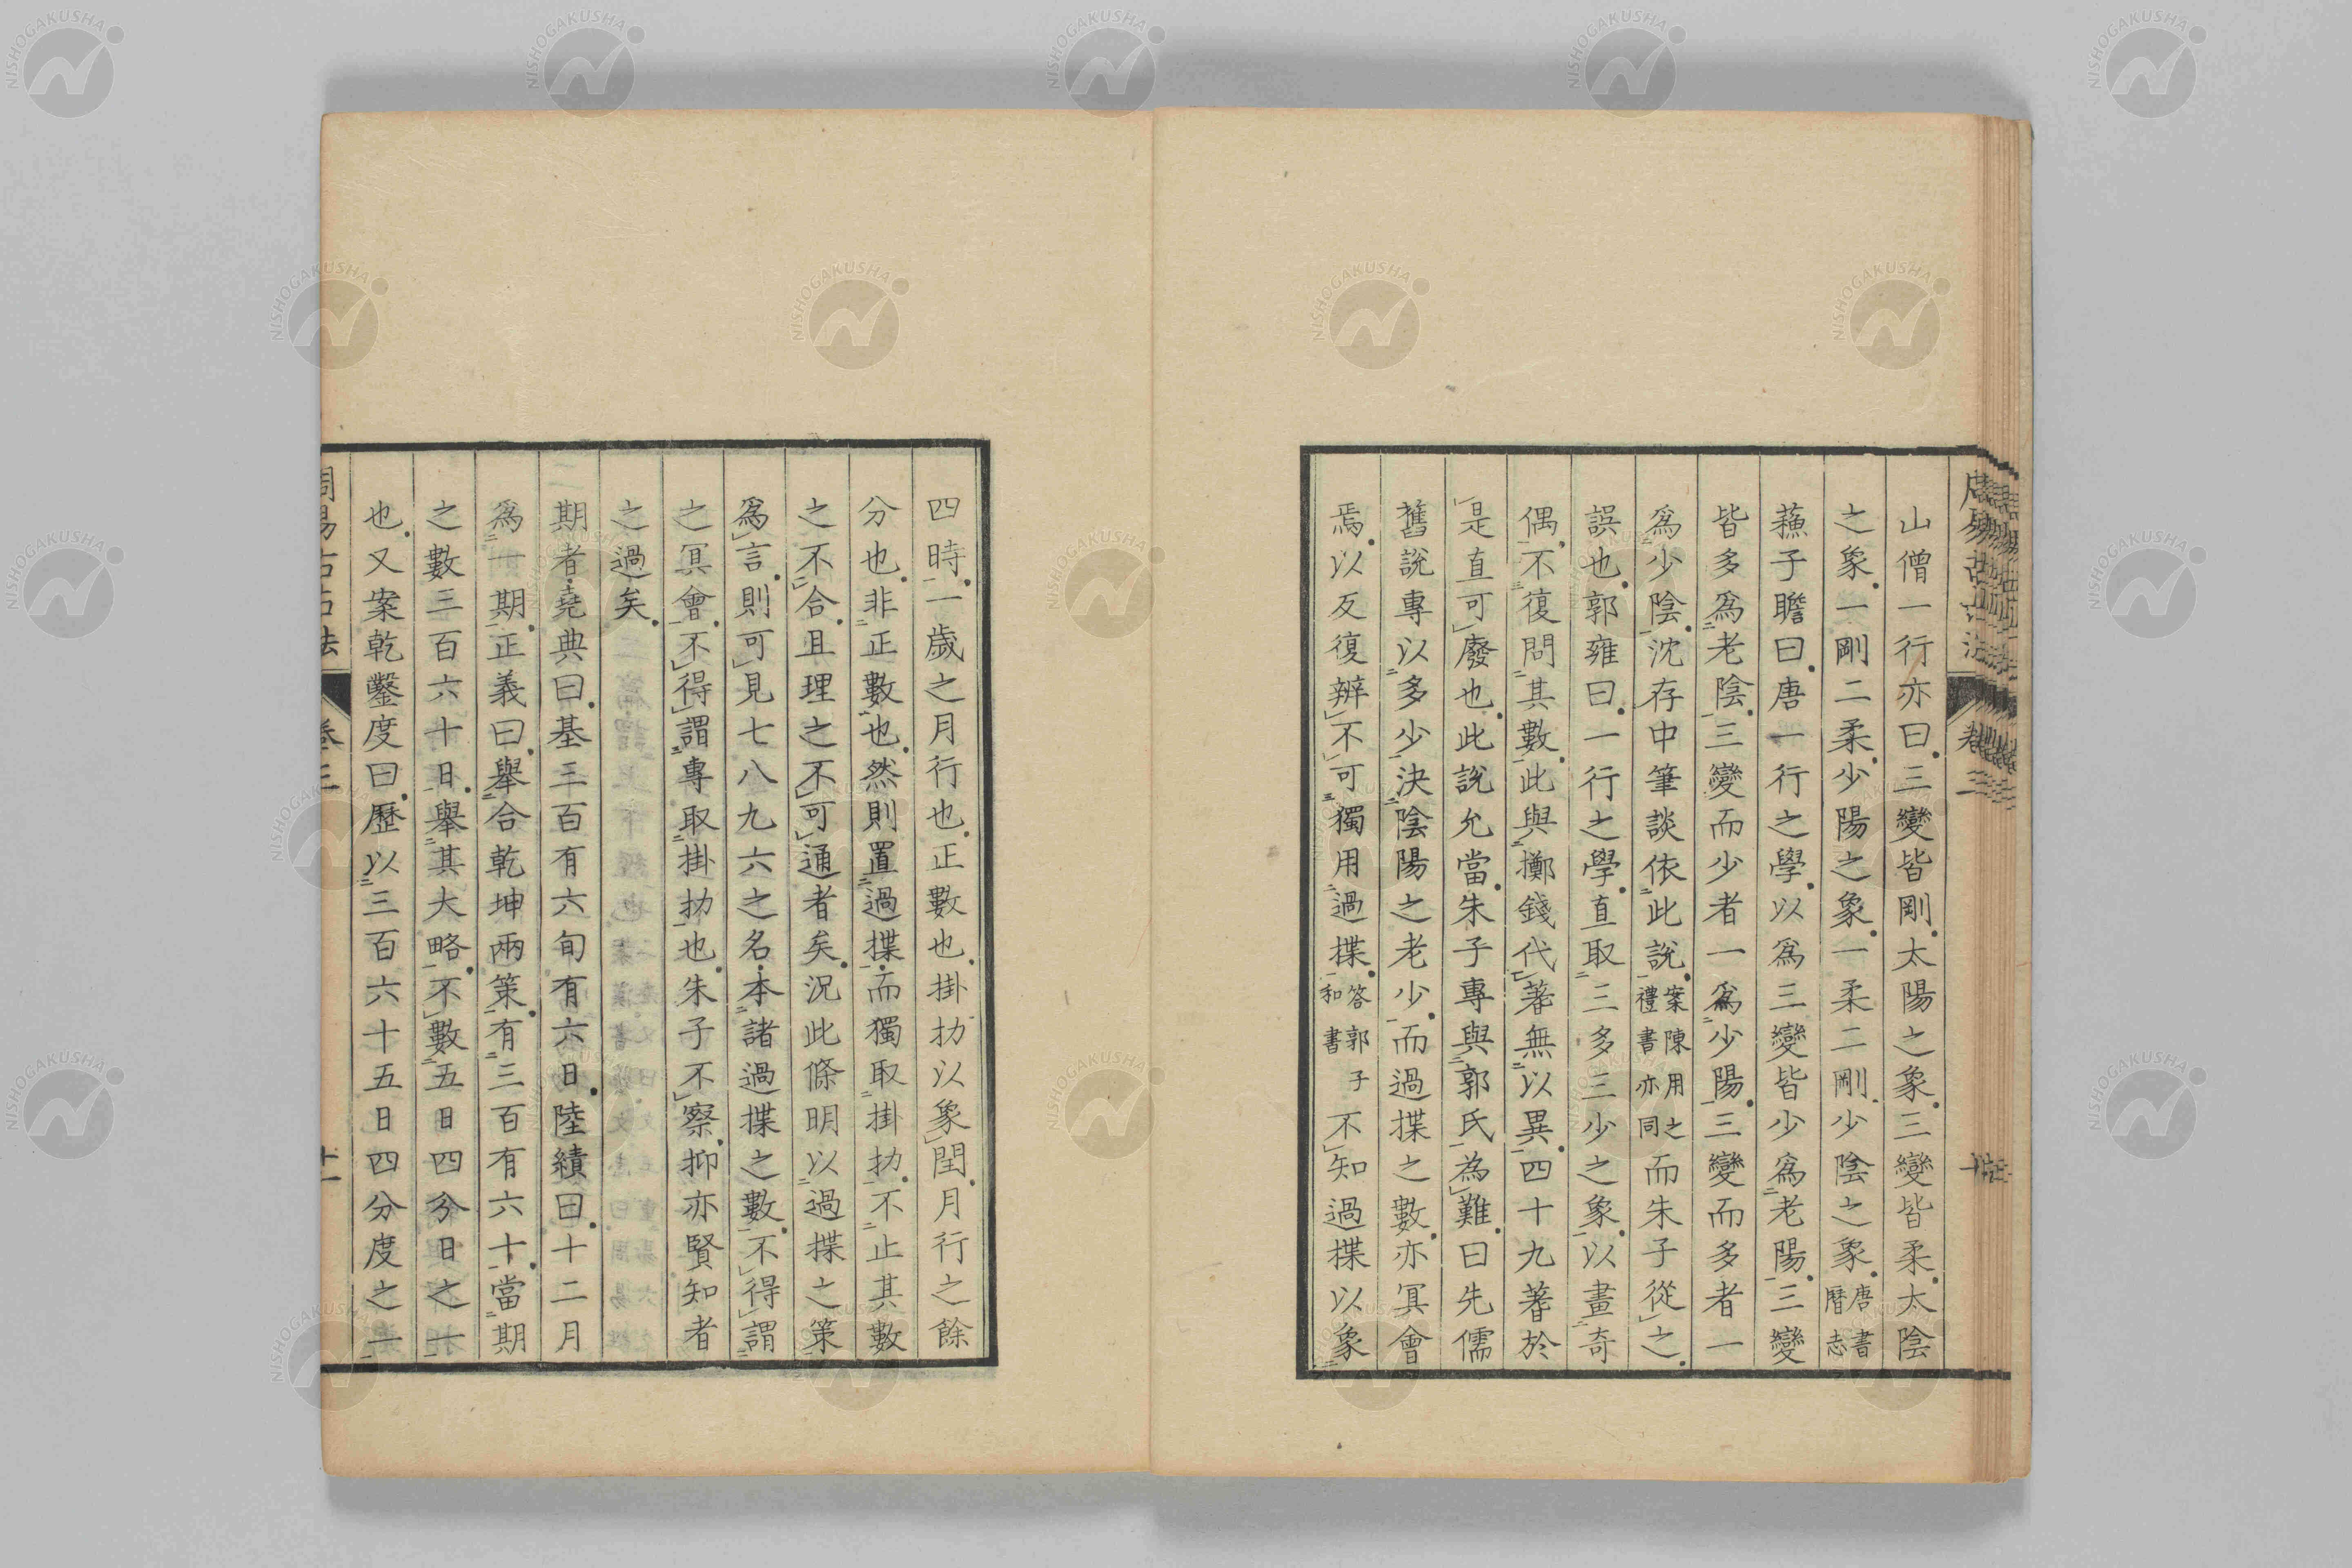 山僧一行亦曰三變皆剛太陽之象三變皆柔太陰
之象一剛二柔少陽之象一柔二剛少陰之象唐書曆志
蘓子瞻曰唐一行之學以爲三變皆少爲老陽三變
皆多爲老陰三變而少者一爲少陽三變而多者一
爲少陰沈存中筆談依此說案陳用之禮書亦同而朱子從之
誤也郭雍曰一行之學直取三多三少之象以畫奇
偶不復問其數此與擲錢代蓍無以異四十九蓍於
是直可廢也此說允當朱子專與郭氏為難曰先儒
舊說專以多少決陰陽之老少而過揲之數亦冥會
焉以反復辨不可獨用過揲答郭子和書不知過揲以象
四時一歲之月行也正數也掛扐以象閏月行之餘
分也非正數也然則置過揲而獨取掛扐不止其數
之不合且理之不可通者矣況此條明以過揲之策
爲言則可見七八九六之名本諸過揲之數不得謂
之冥會不得謂專取掛扐也朱子不察抑亦賢知者
之過矣
期者堯典曰基三百有六旬有六日陸績曰十二月
爲期正義曰舉合乾坤兩策有三百有六十當期
之數三百六十日舉其大略不數五日四分日之一
也又案乾鑿度曰歷以三百六十五日四分度之一
周易古占法 卷三 十一